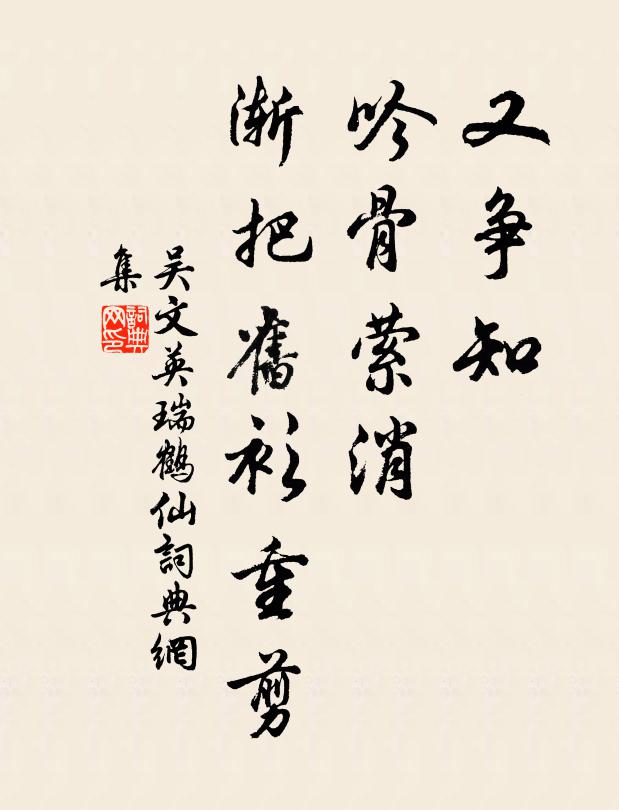 又争知
吟骨萦消
渐把舊衫重剪
吴文英瑞鶴仙詞典網
集
詞典网印